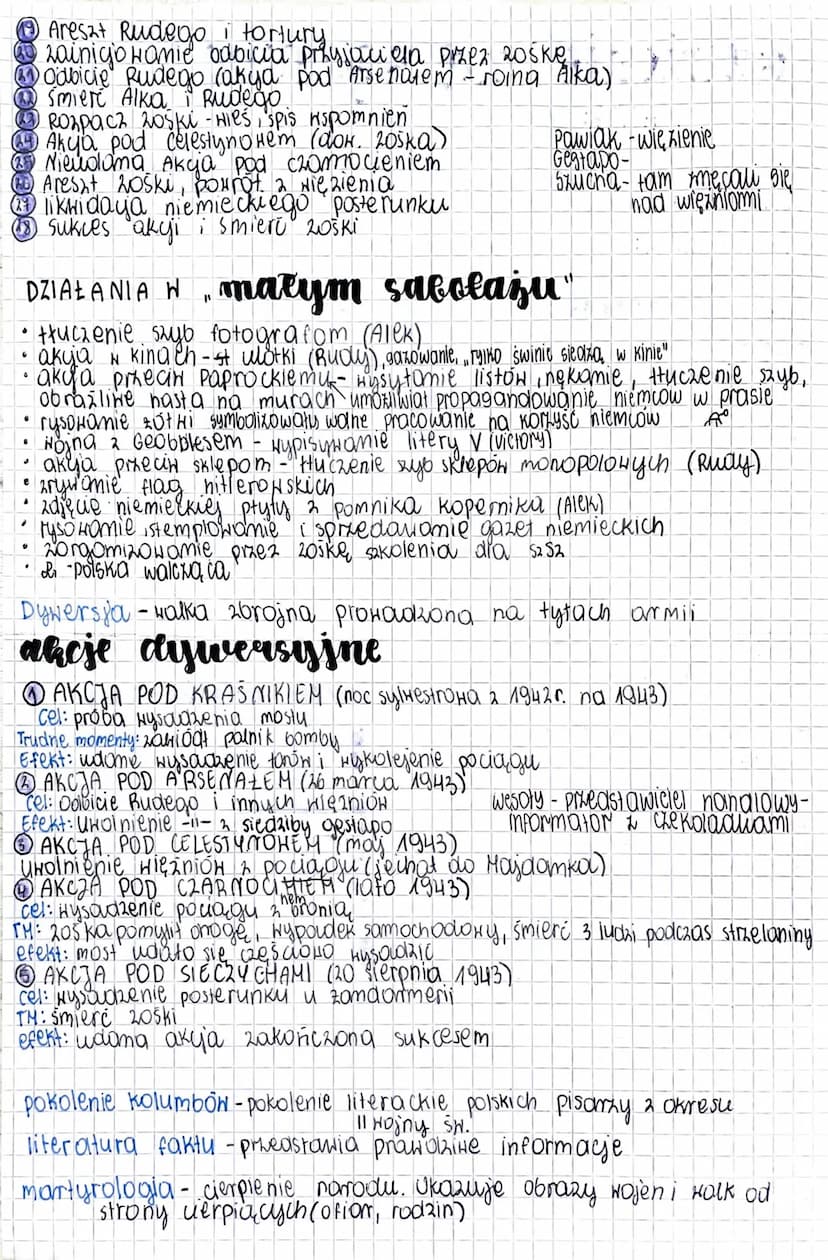 19 Areszt Rudego i tortury
20 zainicjowanie odbicia przyjaciela przez zośkę
21 odbicie Rudego (akcja pod Arsenałem - rola Alka)
22 śmierć Alka i Rudego
23 Rozpacz zośki - wieś, spis wspomnień
24 Akcja pod celestynowem (dow. zośka)
25 Nieudana Akcja pod czarnocieniem
26 Areszt zośki, powrót z więzienia
27 likwidacja niemieckiego posterunku
28 sukces akcji i śmierć zośki
Pawiak - więzienie
Gestapo -
szucha - tam znęcali się
nad więźniomi
DZIAŁANIA W „małym sabotażu"
• tłuczenie szyb fotografom (Alek)
• akcja w kinach - ulotki (Rudy), gazowanie, „tylko świnie siedzą w kinie"
• akcja przeciw Paprockiemu - wysyłanie listów, nękanie, tłuczenie szyb,
obraźliwe hasła na murach umożliwiał propagandowanie niemców w prasie
• rysowanie żółwi symbolizowały wolne pracowanie na korzyść niemców
• wojna z Geobblesem - wypisywanie litery V (victory)
• akcja przeciw sklepom - tłuczenie szyb sklepów monopolowych (Rudy)
• zrywanie flag hitlerowskich
• zdjęcie niemieckiej płyty z pomnika kopernika (Alek)
• rysowanie, stemplowanie i sprzedawanie gazet niemieckich
• zorganizowanie przez zośkę szkolenia dla szsz
• - polska walcząca
Dywersja - walka zbrojna prowadzona na tyłach armii
akcje dywersyjne
1 AKCJA POD KRAŚNIKIEM (noc sylwestrowa z 1942r. na 1943)
cel: próba wysadzenia mostu
Trudne momenty: zawiódł palnik bomby
Efekt: udane wysadzenie torów i wykolejenie pociągu
2 AKCJA POD ARSENAŁEM (26 marca 1943)
cel: Odbicie Rudego i innych więzniów
Efekt: Uwolnienie -||- z siedziby gestapo
wesoły - przedstawiciel handlowy -
informator z czekoladkami
3 AKCJA POD CELESTYNOWEM (maj 1943)
uwolnienie więźniów z pociągu (jechał do Majdanka)
4 AKCJA POD CZARNOCINEM (lato 1943)
cel: wysadzenie pociągu z bronią
TM: zośka pomylił drogę, wypadek samochodowy, śmierć 3 ludzi podczas strzelaniny
efekt: most udało się częściowo wysadzić
5 AKCJA POD SIECZYCHAMI (20 sierpnia 1943)
cel: wysadzenie posterunku u żandarmerii
TM: śmierć zośki
efekt: udana akcja zakończona sukcesem
pokolenie kolumbów - pokolenie literackie polskich pisarzy z okresu
II wojny św.
literatura faktu - przedstawia prawdziwe informacje
martyrologia - cierpienie narodu. Ukazuje obrazy wojen i walk od
strony cierpiących (ofiar, rodzin)